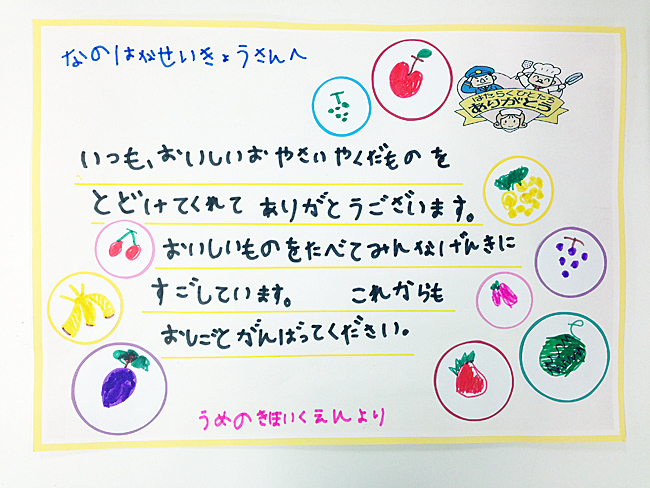 なのはなせいきょうさんへ
はたらくひとたち
ありがとう
いつも、おいしいおやさいやくだものを
とどけてくれてありがとうございます。
おいしいものをたべてみんなげんきに
すごしています。 これからも
おしごとがんばってください。
うめのきほいくえんより